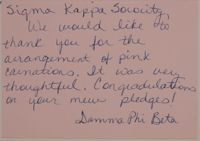 Sigma Kappa Sorority,
We would like to
thank you for the
arrangement of pink
carnations. It was very
thoughtful. Congradulations
on your new pledges!
Gamma Phi Beta